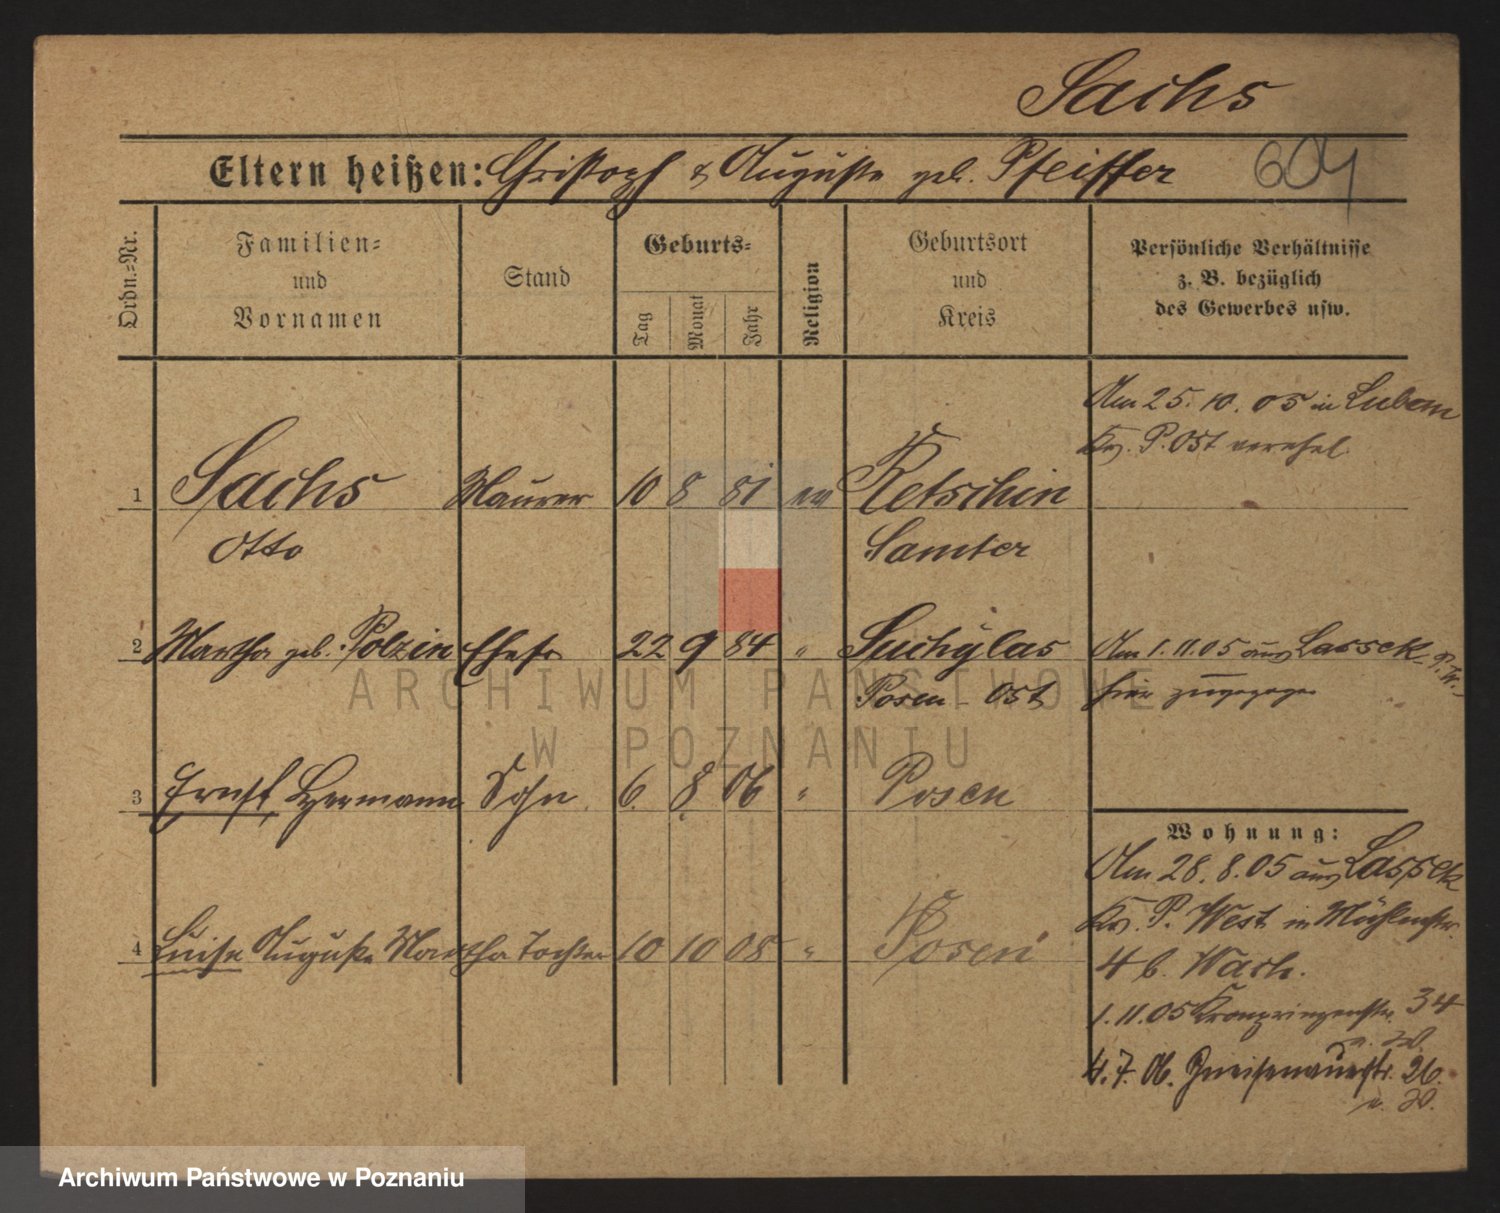 Sachs
Eltern heißen: Christoph & Auguste geb. Pfeiffer 604
Ordn.=Nr.
Familien=
und
Vornamen
Stand
Geburts=
Tag
Monat
Jahr
Religion
Geburtsort
und
Kreis
Persönliche Verhältnisse
z. B. bezüglich
des Gewerbes usw.
Am 25. 10. 05 in Luban
Kr. P. Ost verehel.
1 Sachs Maurer 10 8 81 ev Retschin
Otto Samter
2 Martha geb. Polzin Ehefr 22 9 84 " Suchylas Am 1. 11. 05 aus Lasseck P. W.
Posen-Ost hier zugezogen
3 Ernst Hermann Sohn 6. 8. 06 " Posen
4 Luise Auguste Martha Tochter 10 10 08 " Posen
Wohnung:
Am 28. 8. 05 aus Lasseck
Kr. P. West in Mühlenstr.
4 b.
1. 11. 05 Kronprinzenstr. 34
4. 7. 06. Gneisenaustr. 26.
ARCHIWUM PAŃSTWOWE
W POZNANIU
Archiwum Państwowe w Poznaniu